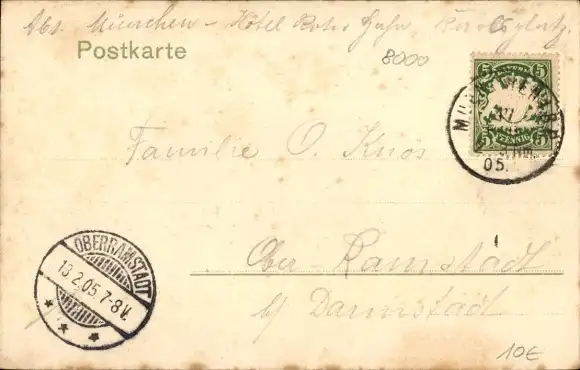 Abs. München - Hôtel Roter Hahn, Karlsplatz.
Postkarte
8000
5 5
PFENNIG
05.
Familie O. Knös
OBERRAMSTADT
13.2.05.7-8V.
Ober-Ramstadt
b/ Darmstadt
10€